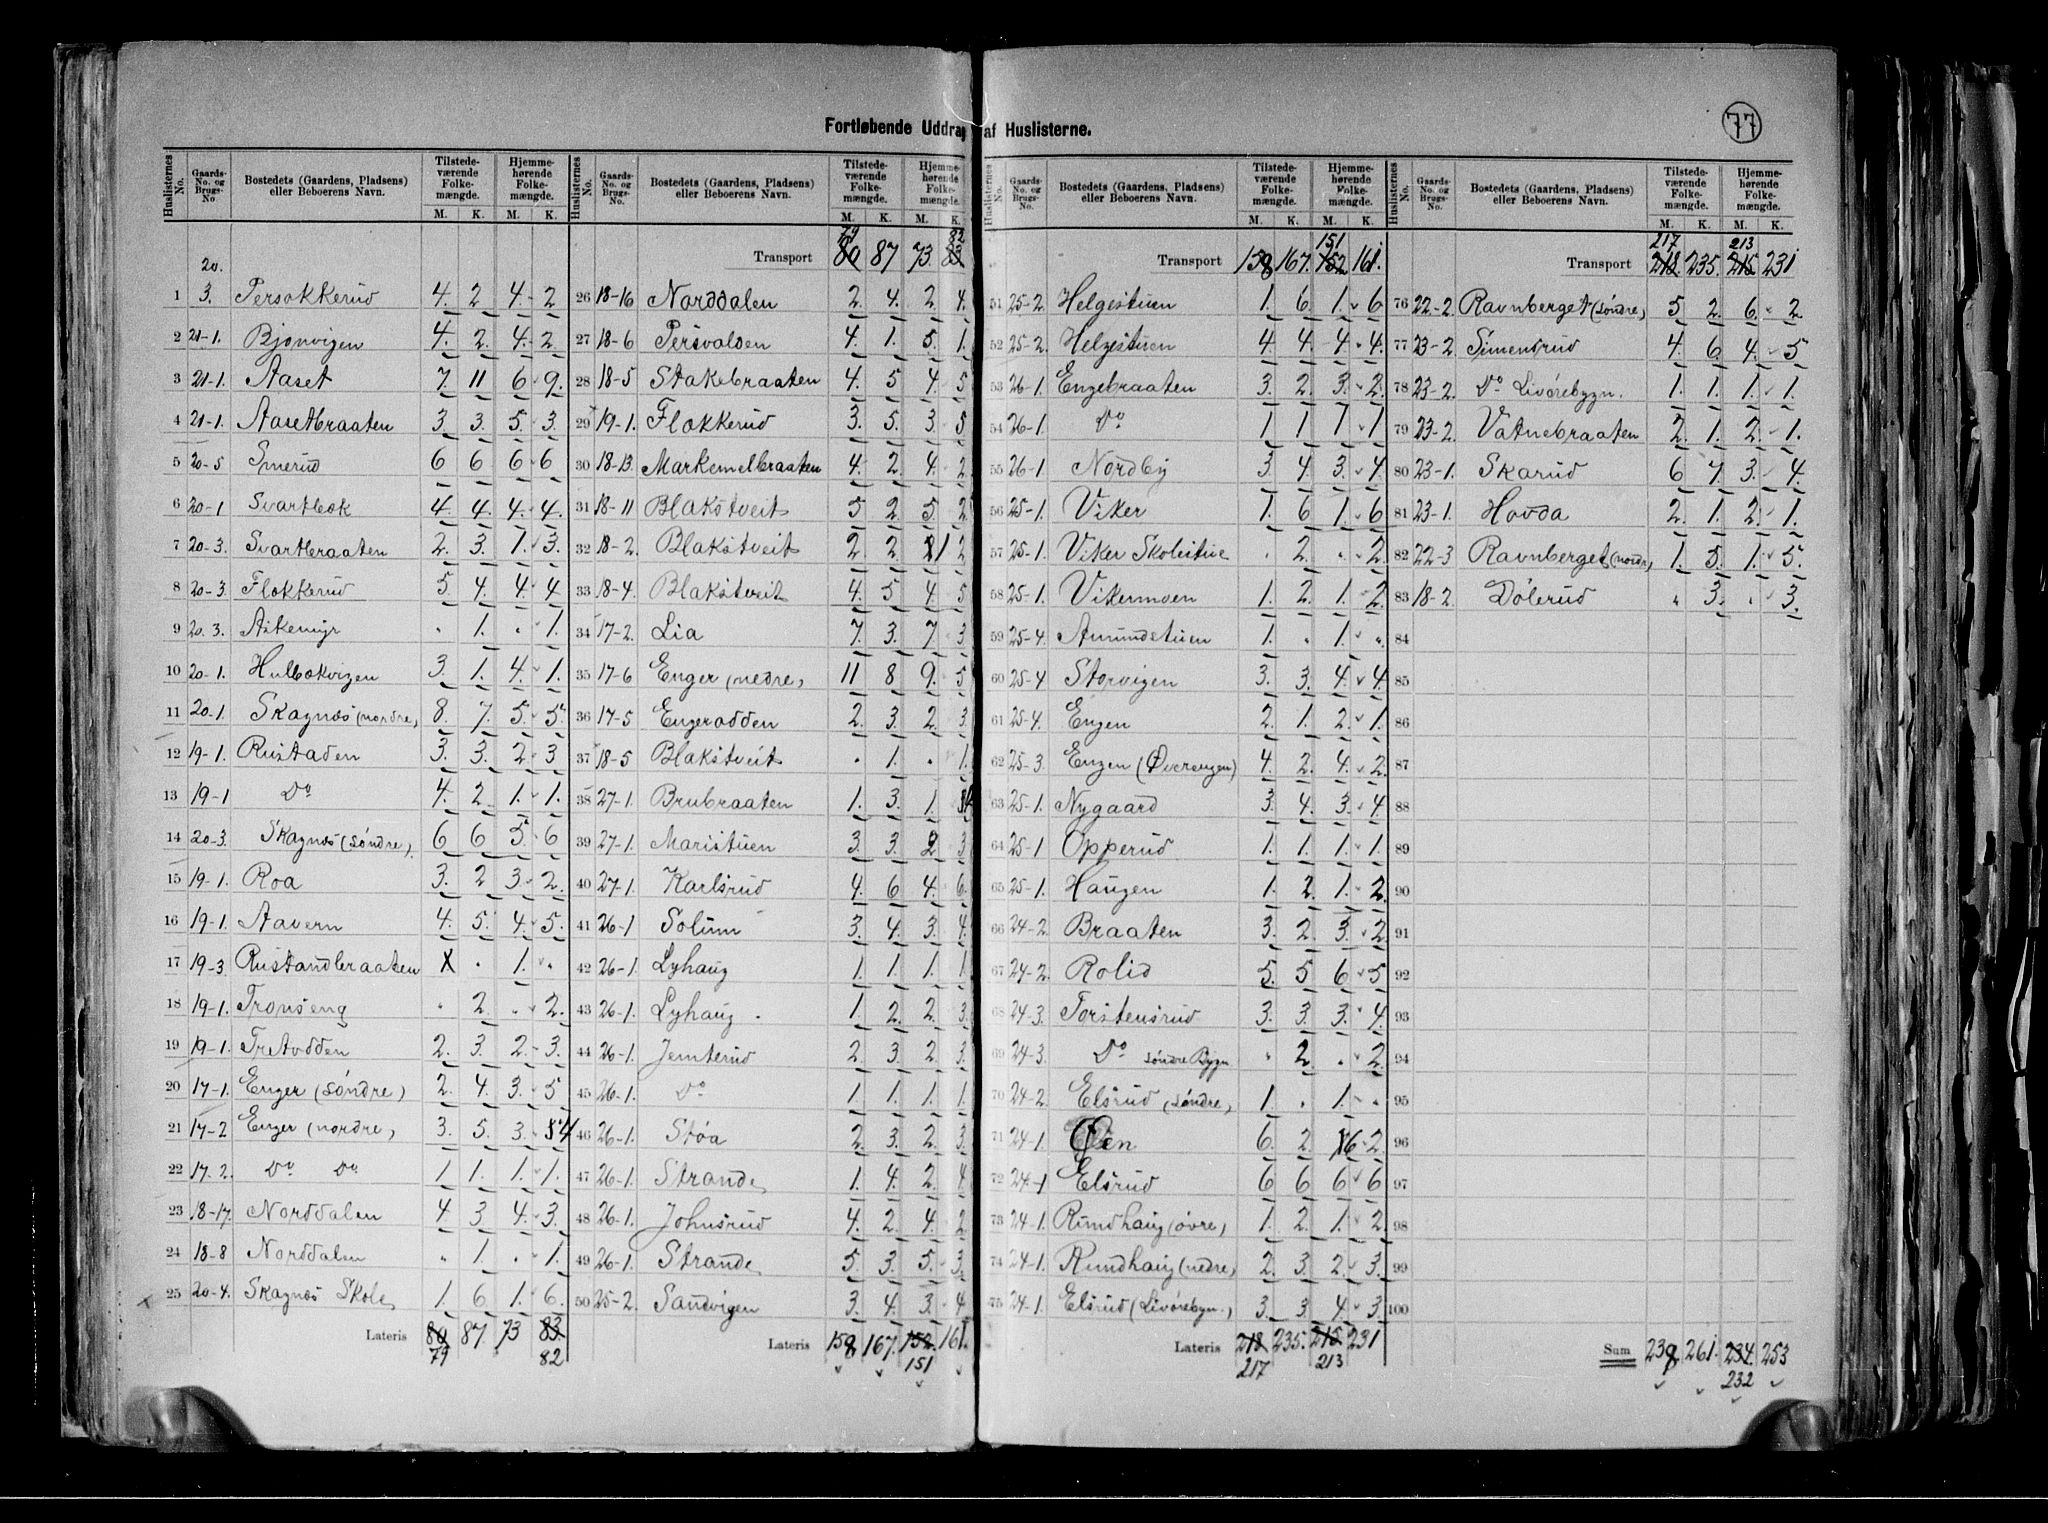 Fortløbende Uddrag af Huslisterne.
77
Huslisternes No. Gaards-No. og Brugs-No Bostedets (Gaardens, Pladsens) eller Beboerens Navn. Tilstedeværende Folkemængde. M. K. Hjemmehørende Folkemængde. M. K.
1 20. 3. Persokkerud 4. 2 4. 2
2 21-1. Bjonvigen 4. 2. 4. 2.
3 21-1. Aaset 7. 11 6 9.
4 21-1. Aasetbraaten 3. 3. 5. 3.
5 20-5 Smerud 6 6 6 6
6 20-1 Svartbæk 4. 4. 4. 4.
7 20-3. Svartbraaten 2. 3. 1. 3.
8 20-3. Flokkerud 5. 4. 4. 4
9 20.3. Askemyr . 1. . 1.
10 20-1. Hulbækvigen 3. 1. 4. 1.
11 20-1. Skagnæs (nordre) 8. 7. 5. 5.
12 19-1. Rustaden 3. 3. 2. 3
13 19-1 Do 4. 2. 1. 1.
14 20-3. Skagnæs (Søndre) 6 6 5 6
15 19-1. Roa 3. 2 3. 2.
16 19-1. Aavern 4. 5. 4. 5.
17 19-3. Rustandbraaten . 1. .
18 19-1. Tronseng . 2. . 2.
19 19-1. Tretodden 2. 3. 2. 3.
20 17-1. Enger (Søndre) 2. 4. 3. 5
21 17-2 Enger (nordre) 3. 5. 3. 4
22 17.2. Do Do 1. 1. 1. 1.
23 18-17. Norddalen 4 3. 4. 3.
24 18-8 Norddalen . 1. . 1.
25 20-4. Skagnæs Skole 1. 6 1. 6.
Lateris 80 87. 73 83
79 82
Transport 80 87 73 83
79 82
26 18-16 Norddalen 2. 4. 2. 4.
27 18-6 Persvalden 4. 1. 5. 1.
28 18-5 Stakebraaten 4. 5 4. 5
29 19-1. Flokkerud 3. 5. 3. 5
30 18-13. Markemelbraaten 4. 2 4. 2
31 18-11 Blakstveit 5 2. 5. 2
32 18-2. Blakstveit 2. 2. 1 2
33 18-4. Blakstveit 4. 5 4. 5
34 17-2. Lia 7. 3. 7. 3
35 17-6 Enger (nedre) 11 8 9. 5
36 17-5 Engerodden 2. 3. 2. 3
37 18-5 Blakstveit . 1. . 1.
38 27-1. Brubraaten 1. 3. 1. 4
39 27-1. Maristuen 3. 3. 2 3
40 27-1. Karlsrud 4. 6 4. 6.
41 26-1 Solum 3. 4. 3. 4.
42 26-1. Lyhaug 1. 1. 1. 1
43 26-1. Lyhaug 1. 2. 2. 3.
44 26-1. Jemterud 2. 3. 2. 3.
45 26-1. Do 1. 1. 1. 1.
46 26-1. Støa 2. 3. 2. 3.
47 26-1. Strande 1. 4. 2. 4
48 26-1. Johnsrud 4. 2. 4. 2
49 26-1. Strande 5. 3. 5. 3
50 25-2. Sandvigen 3. 4. 3. 4
Lateris 158 167. 152. 161.
151
Transport 158 167. 152 161.
151
51 25-2. Helgestuen 1. 6 1. 6
52 25-2. Helgestuen 4. 4. 4. 4.
53 26-1. Engebraaten 3. 2. 3. 2.
54 26-1. Do 1 1 1 1
55 26-1 Nordby 3. 4. 3. 4.
56 25-1. Viker 1. 6 1. 6
57 25-1. Viker Skolestue . 2. . 2.
58 25-1. Vikermoen 1. 2. 1. 2.
59 25-4. Amundstuen 1. . 1. .
60 25-4 Storvigen 3. 3. 4. 4.
61 25-4. Engen 2. 1. 2. 1.
62 25-3. Engen (Øverengen) 4. 2. 4. 2.
63 25-1. Nygaard 3. 4. 3. 4
64 25-1 Opperud 1. 1. 1. 1
65 25-1. Haugen 1. 2. 1. 2.
66 24-2. Braaten 3. 2. 3. 2.
67 24-2. Rolid 5. 5 6 5
68 24-3. Torstensrud 3. 3. 3. 4.
69 24-3. Do Søndre Bygn . 2. . 2.
70 24-2. Elsrud (Søndre) 1. . 1. .
71 24-1. Øen 6. 2. 6 2.
72 24-1 Elsrud 6 6 6 6
73 24-1. Rundhaug (øvre) 1. 2. 1. 2.
74 24-1. Rundhaug (nedre) 2. 3. 2. 3.
75 24-1. Elsrud (Livørebygn.) 3. 3 4. 3
Lateris 218 235. 215. 231
217 213
Transport 218 235. 215 231
217 213
76 22-2. Ravnberget (Søndre) 5 2. 6. 2.
77 23-2. Simensrud 4. 6 4. 5
78 23-2. Do Livørebygn. 1. 1. 1. 1.
79 23-2. Vatnebraaten 2. 1. 2. 1.
80 23-1. Skarud 6 7. 3. 4.
81 23-1. Hovda 2. 1. 2. 1.
82 22-3 Ravnberget (nordr) 1. 5. 1. 5.
83 18-2. Dølerud . 3. . 3.
84
85
86
87
88
89
90
91
92
93
94
95
96
97
98
99
100
Sum 238 261. 234. 253
232